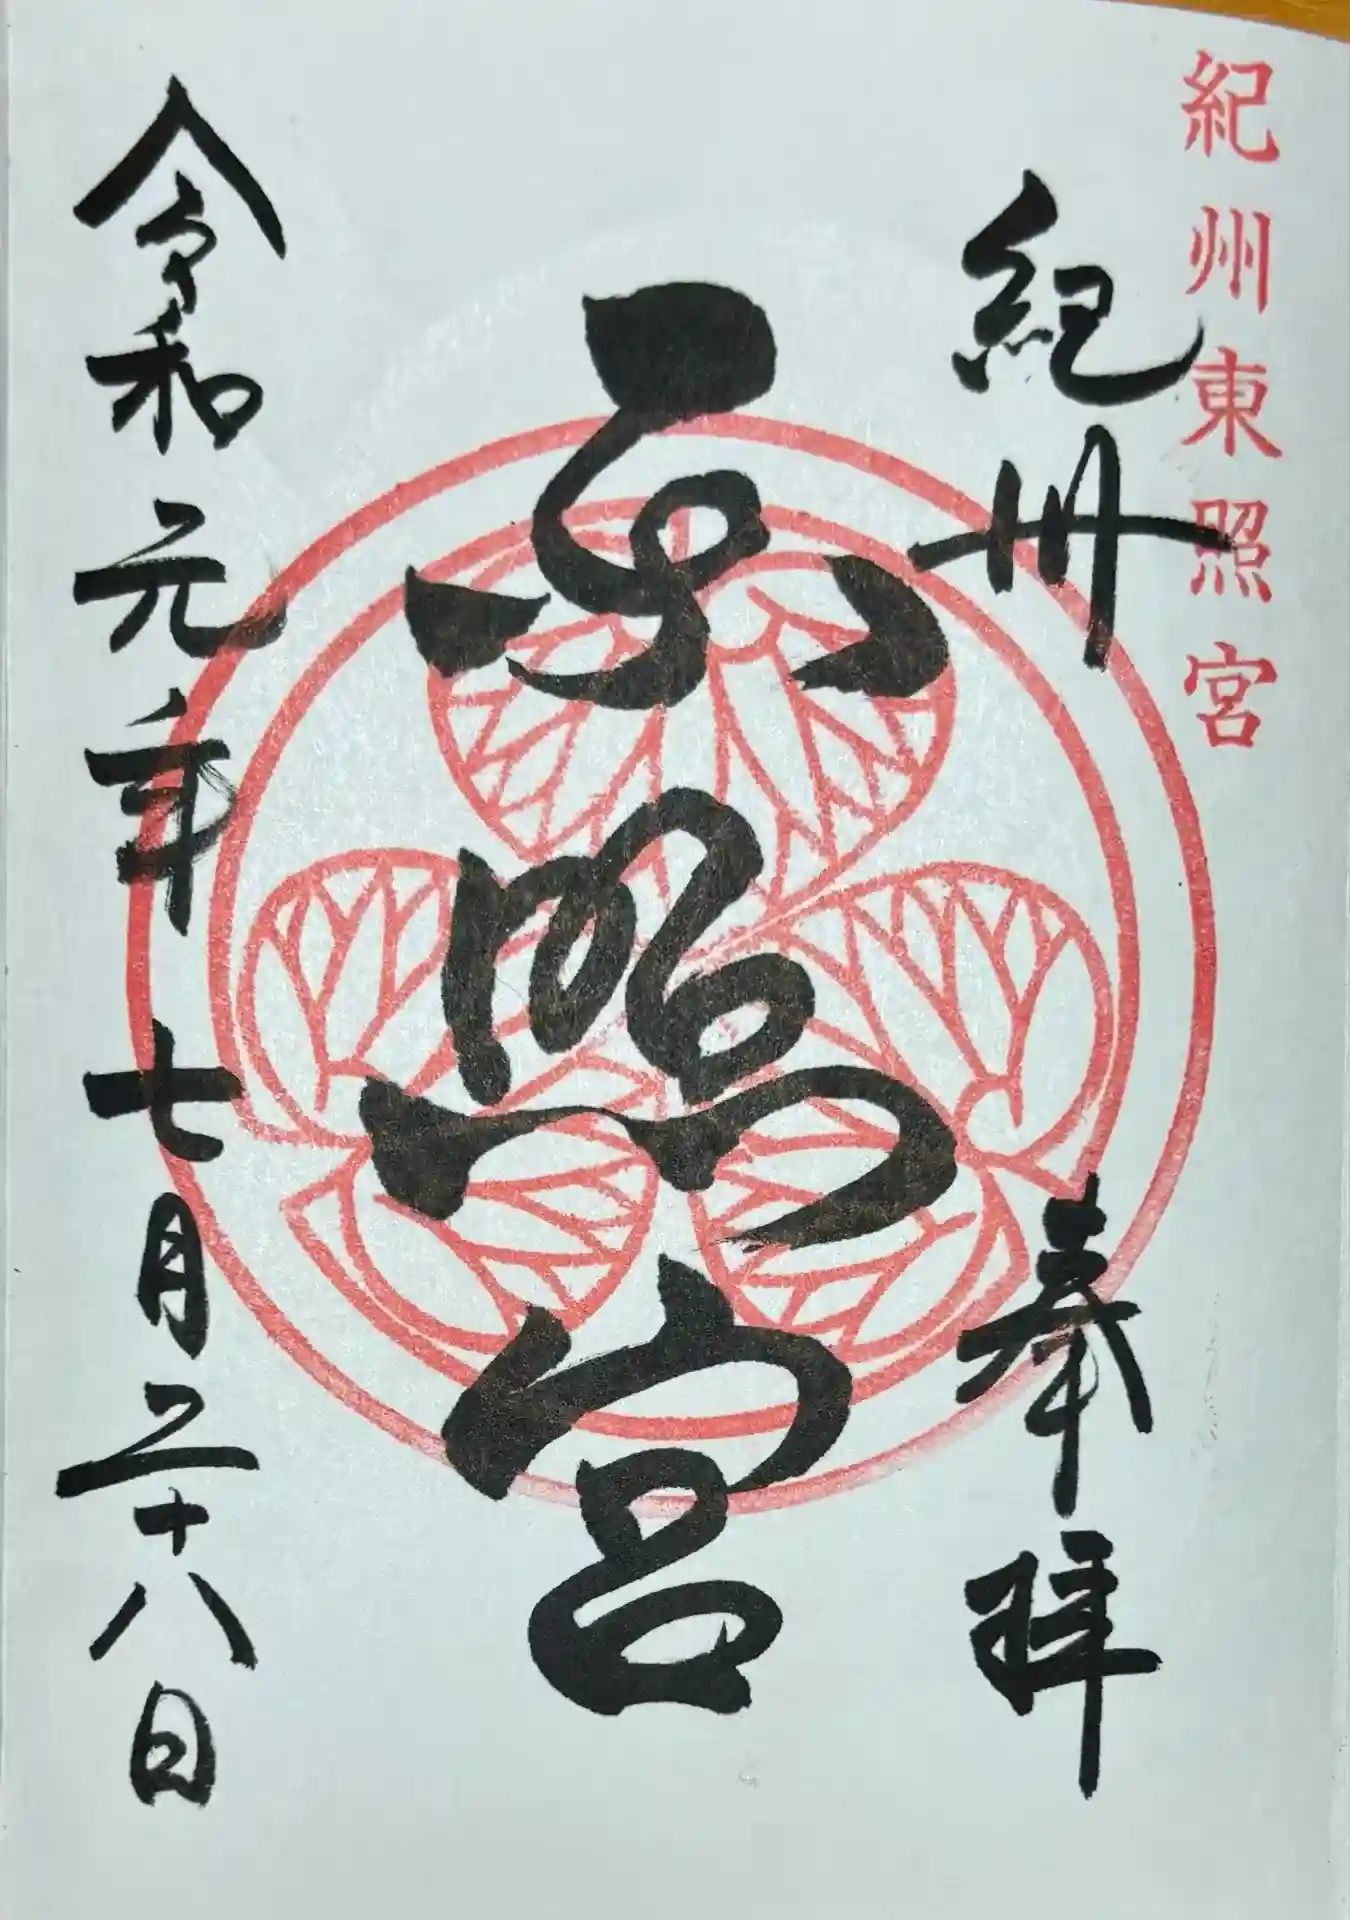 紀州東照宮
紀州 奉拝
東照宮
令和元年七月二十八日